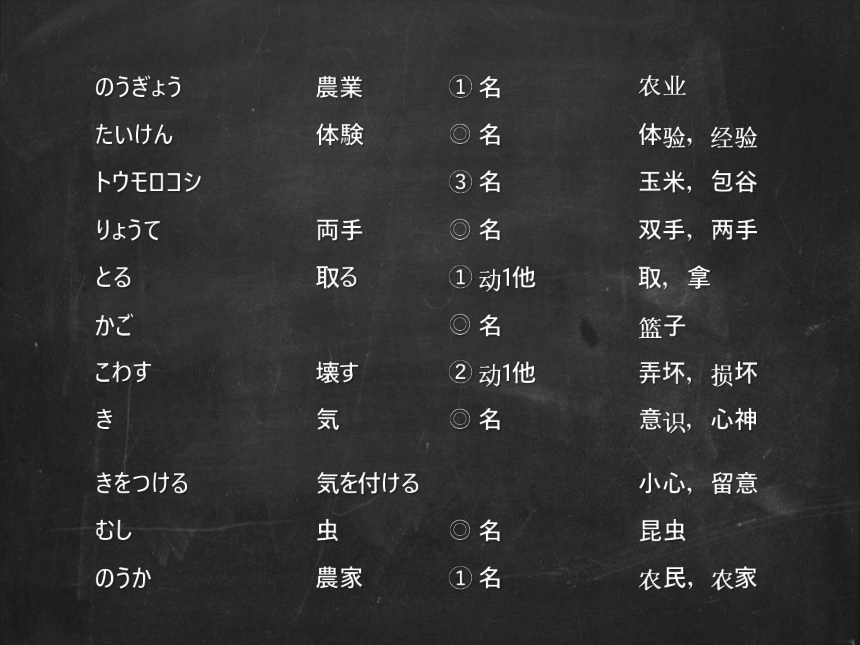 のうぎょう 農業 ① 名 农业
たいけん 体験 ◎ 名 体验，经验
トウモロコシ ③ 名 玉米，包谷
りょうて 両手 ◎ 名 双手，两手
とる 取る ① 动1他 取，拿
かご ◎ 名 篮子
こわす 壊す ② 动1他 弄坏，损坏
き 気 ◎ 名 意识，心神
きをつける 気を付ける 小心，留意
むし 虫 ◎ 名 昆虫
のうか 農家 ① 名 农民，农家